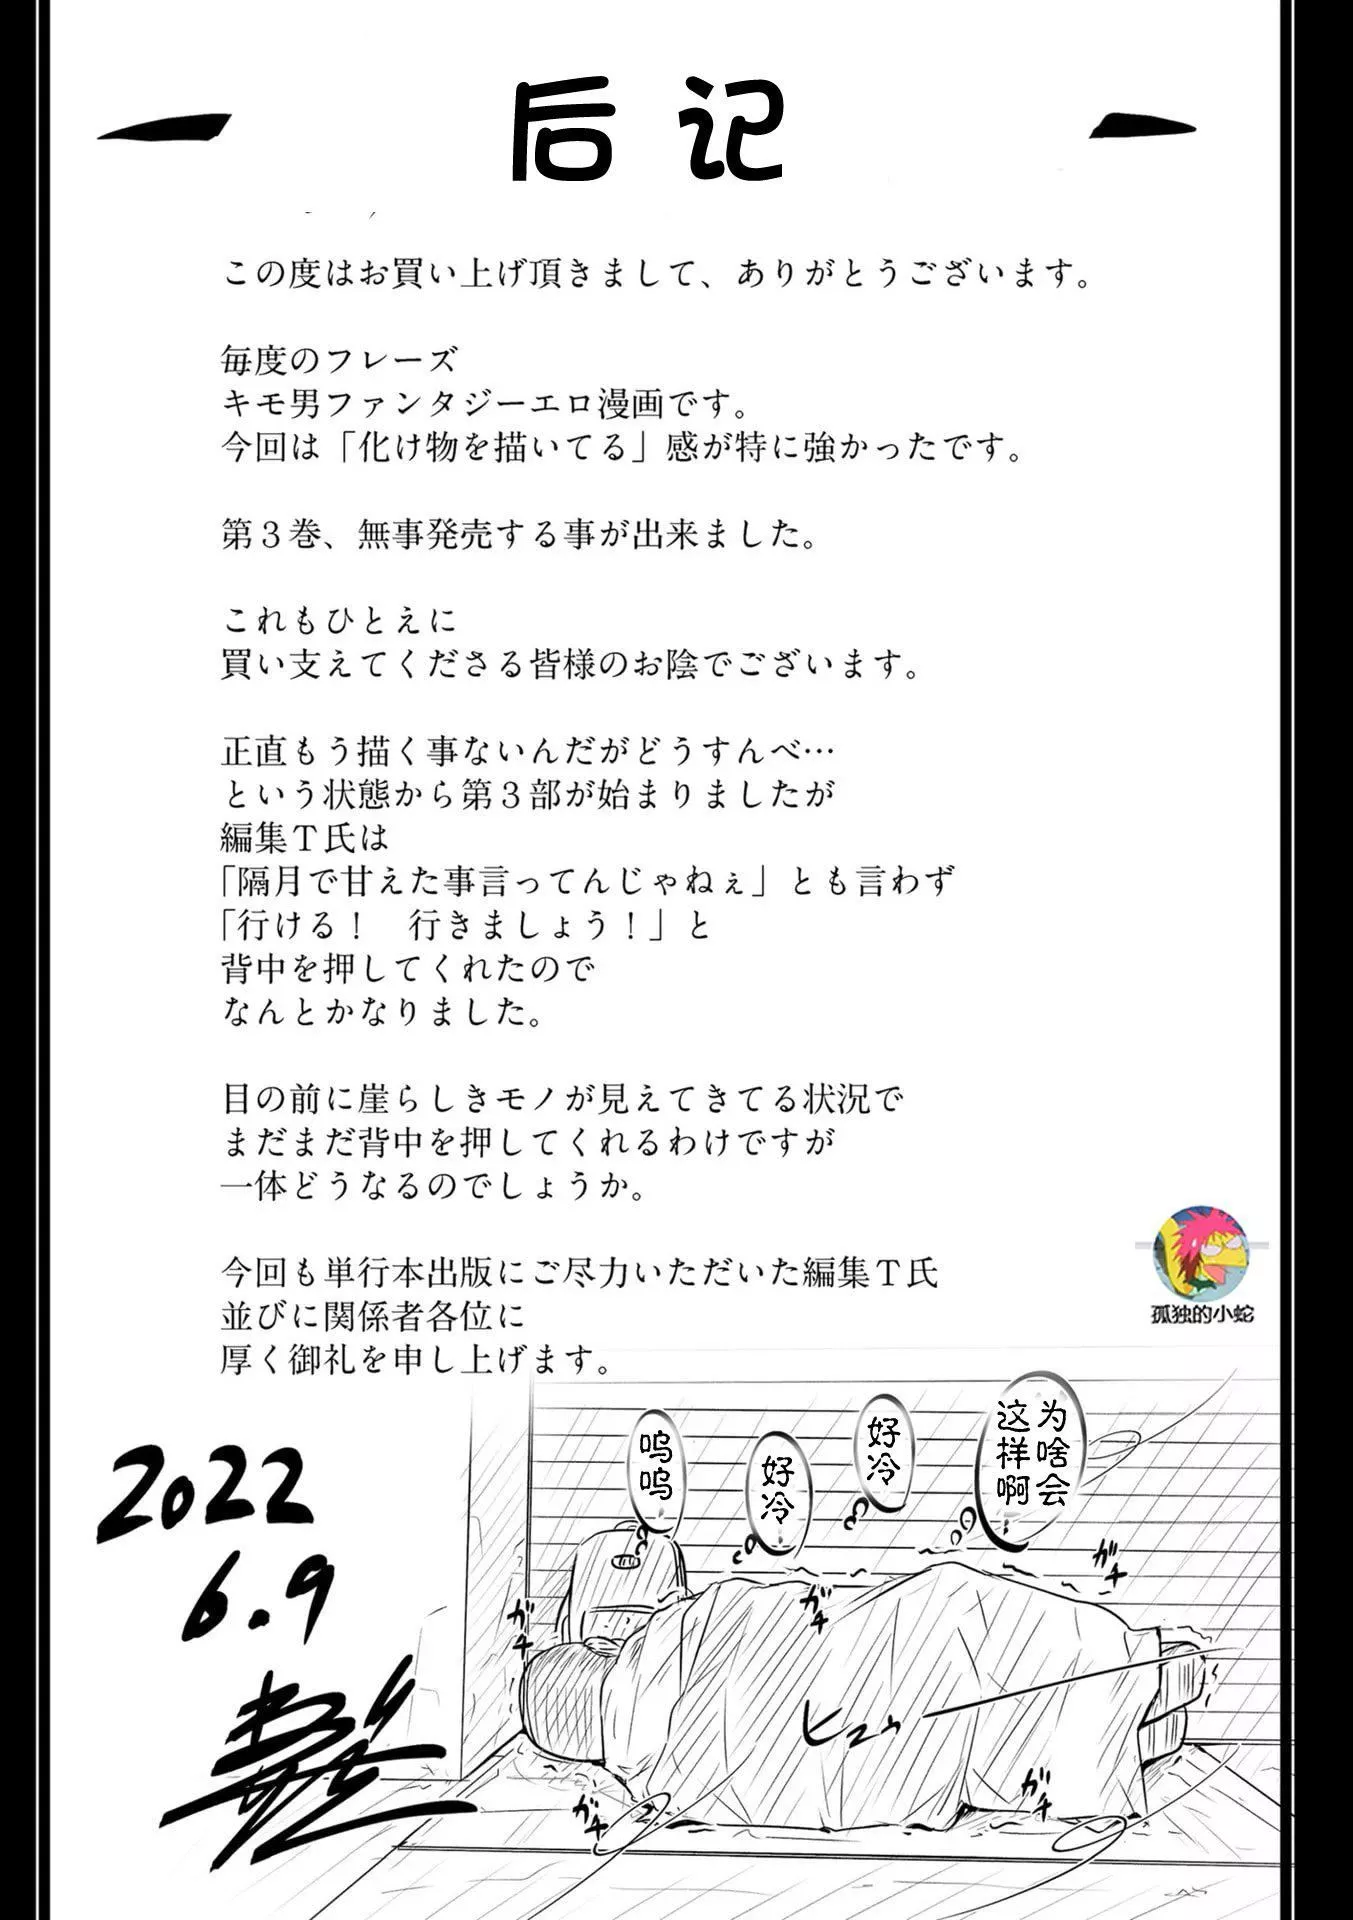 后记
この度はお買い上げ頂きまして、ありがとうございます。
毎度のフレーズ
キモ男ファンタジーエロ漫画です。
今回は「化け物を描いてる」感が特に強かったです。
第３巻、無事発売する事が出来ました。
これもひとえに
買い支えてくださる皆様のお陰でございます。
正直もう描く事ないんだがどうすんべ…
という状態から第３部が始まりましたが
編集Ｔ氏は
「隔月で甘えた事言ってんじゃねぇ」とも言わず
「行ける！　行きましょう！」と
背中を押してくれたので
なんとかなりました。
目の前に崖らしきモノが見えてきてる状況で
まだまだ背中を押してくれるわけですが
一体どうなるのでしょうか。
今回も単行本出版にご尽力いただいた編集Ｔ氏
並びに関係者各位に
厚く御礼を申し上げます。
孤独的小蛇
为啥会
这样啊
好冷
好冷
呜呜
2022
6.9
ガチ
ガチ
ガチ
ヒュゥ
ガチ
ガチ